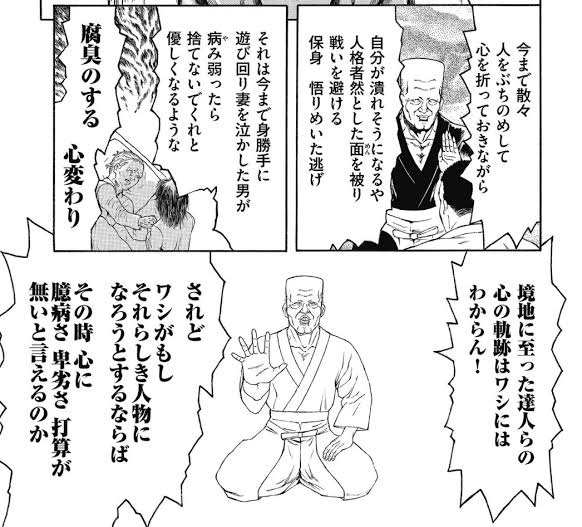 今まで散々
人をぶちのめして
心を折っておきながら
自分が潰れそうになるや
人格者然とした面を被り
めん
戦いを避ける
保身 悟りめいた逃げ
それは今まで身勝手に
遊び回り妻を泣かした男が
病み弱ったら
や
捨てないでくれと
優しくなるような
腐臭のする
心変わり
境地に至った達人らの
心の軌跡はワシには
わからん!
されど
ワシがもし
それらしき人物に
なろうとするならば
その時 心に
臆病さ 卑劣さ 打算が
無いと言えるのか